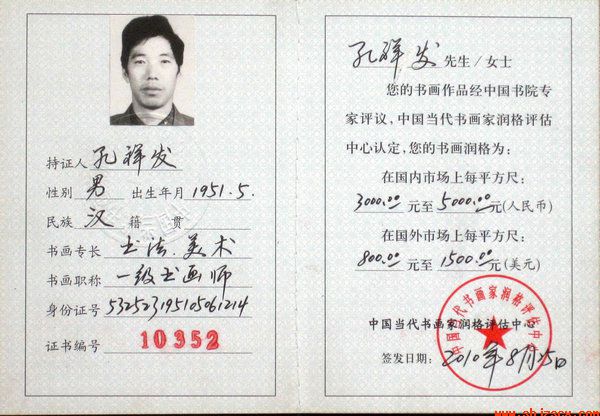 持证人 孔祥发
性别 男 出生年月 1951.5.
民族 汉 籍贯
书画专长 书法.美术
书画职称 一级书画师
身份证号 532523195105061214
证书编号 10352
孔祥发 先生/女士
您的书画作品经中国书院专
家评议，中国当代书画家润格评估
中心认定，您的书画润格为：
在国内市场上每平方尺：
3000.00 元至 5000.00 元(人民币)
在国外市场上每平方尺：
800.00 元至 1500.00 元(美元)
中国当代书画家润格评估中心
签发日期：2010年8月25日
中国当代书画家润格评估中心